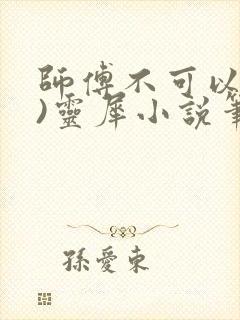 師傅不可以
)靈犀小說筆
孫愛東